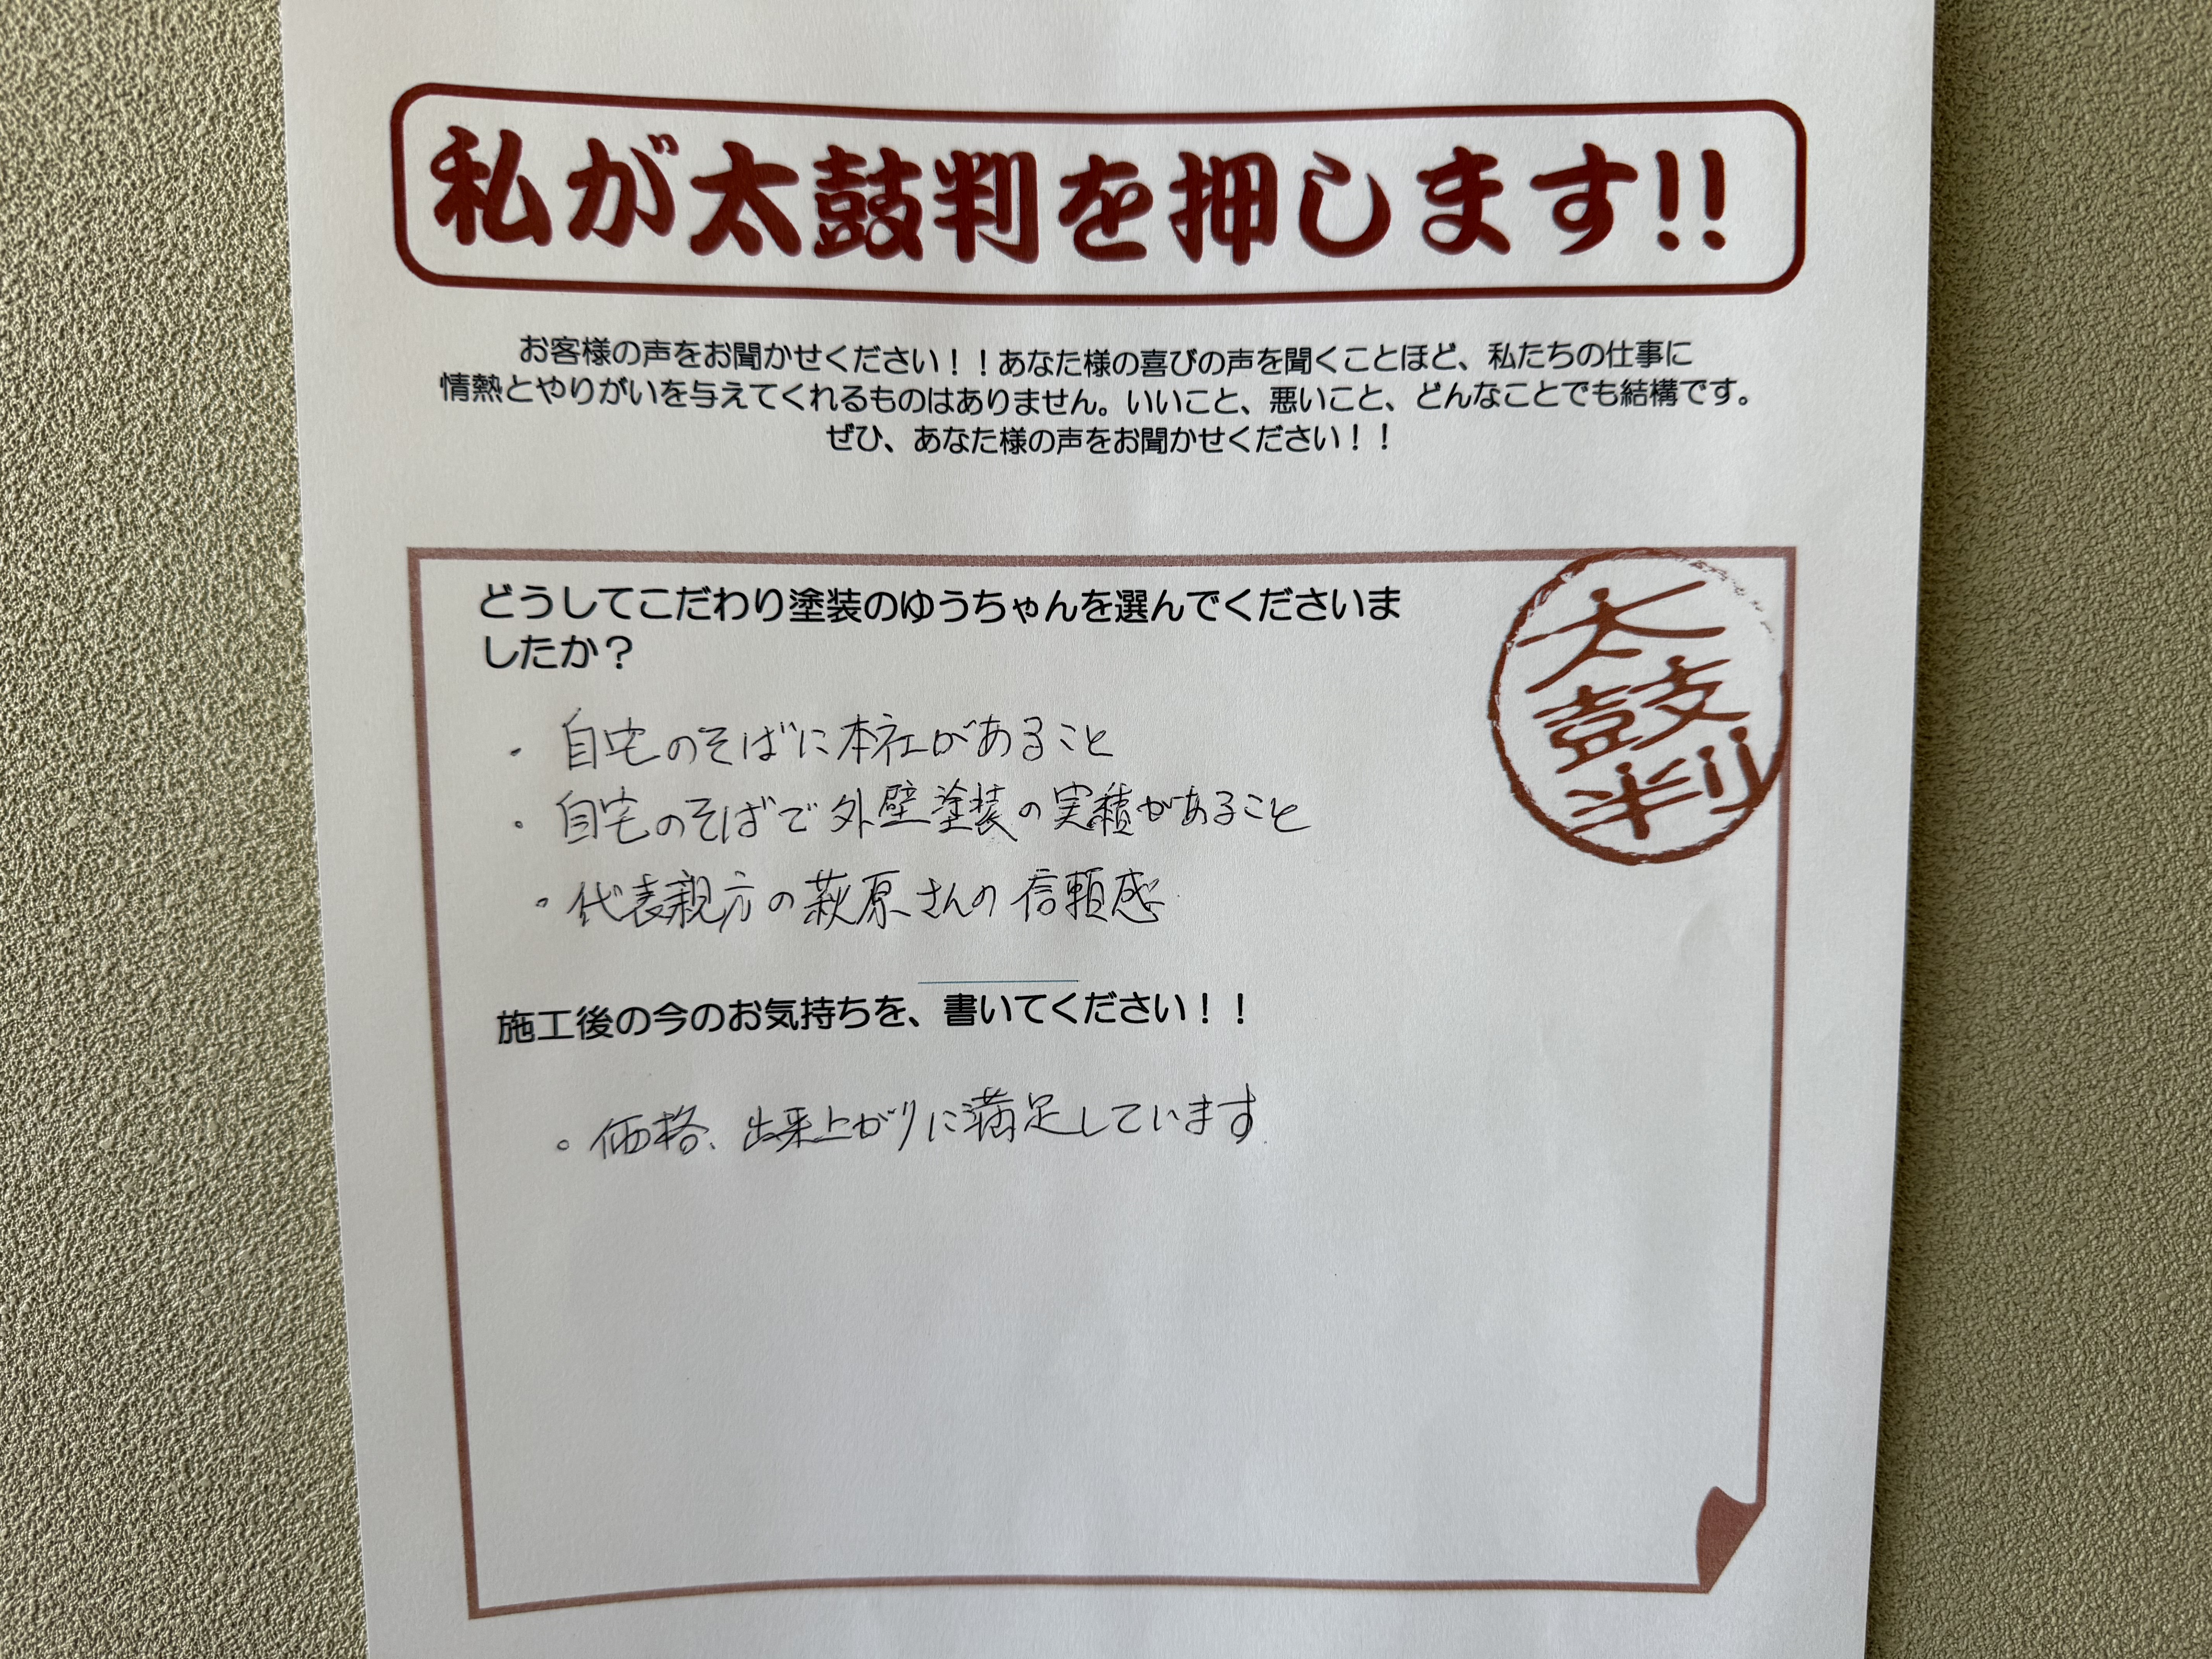 私が太鼓判を押します!!
お客様の声をお聞かせください！！あなた様の喜びの声を聞くことほど、私たちの仕事に
情熱とやりがいを与えてくれるものはありません。いいこと、悪いこと、どんなことでも結構です。
ぜひ、あなた様の声をお聞かせください！！
太
鼓
判
どうしてこだわり塗装のゆうちゃんを選んでくださいま
したか？
・自宅のそばに本社があること
・自宅のそばで外壁塗装の実績があること
・代表親方の萩原さんの信頼感
施工後の今のお気持ちを、書いてください！！
。価格、出来上がりに満足しています